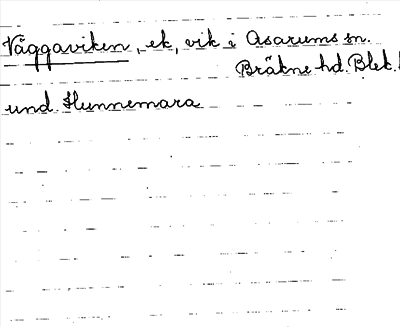 Väggaviken, ek, vik i Asarums sn.
Bräkne hd. Blek.
und. Hunnemara